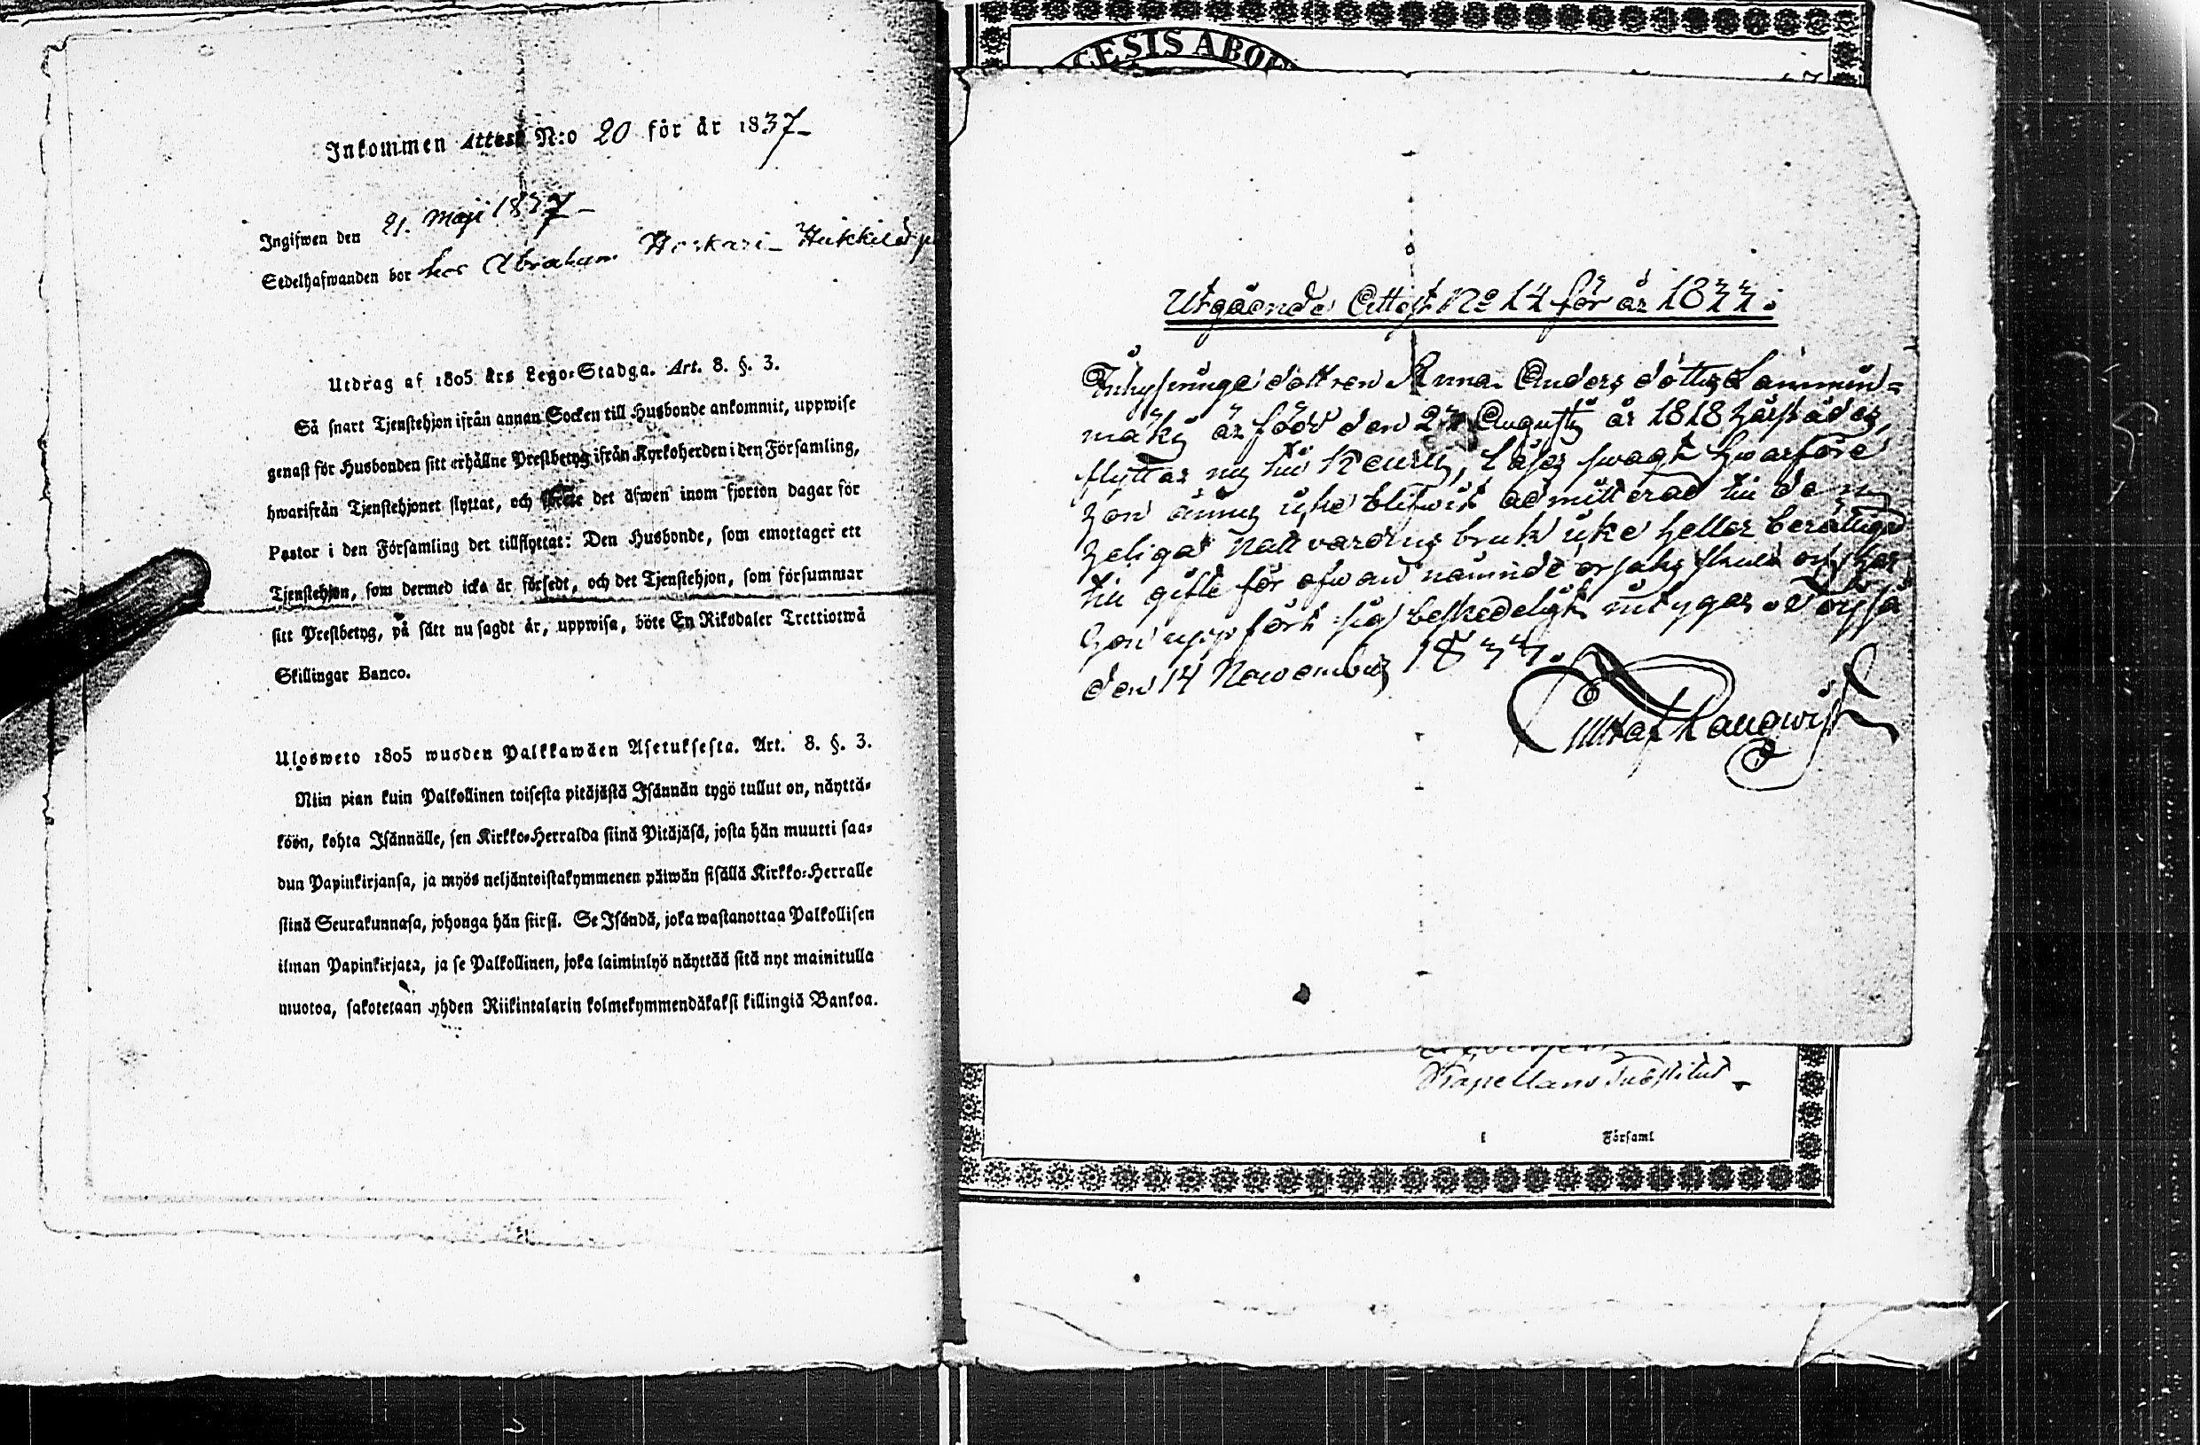 Inkommen Attest N:o 20 för år 1837
Ingifwen den 21. Maji 1837
Sedelhafwanden bor hos Abraham Heikkilä
Utdrag af 1805 års Lego-Stadga. Art. 8. §. 3.
Så snart Tjenstehjon ifrån annan Socken till Husbonde ankommit, uppwise
genast för Husbonden sitt erhållne Prestbetyg ifrån Kyrkoherden i den Församling,
hwarifrån Tjenstehjonet flyttat, och det äfwen inom fjorton dagar för
Pastor i den Församling det tillflyttat: Den Husbonde, som emottager ett
Tjenstehjon, som dermed icka är försedt, och det Tjenstehjon, som försummar
sitt Prestbetyg, på sätt nu sagdt är, uppwisa, böte En Riksdaler Trettiotwå
Skillingar Banco.
Ulosweto 1805 wuoden Palkkawäen Asetuksesta. Art. 8. §. 3.
Niin pian kuin Palkollinen toisesta pitäjästä Isännän tygö tullut on, näyttä-
köön, kohta Isännälle, sen Kirkko-Herralda siinä Pitäjäsä, josta hän muutti saa-
dun Papinkirjansa, ja myös neljäntoistakymmenen päiwän sisällä Kirkko-Herralle
siinä Seurakunnasa, johonga hän siirsi. Se Isändä, joka wastanottaa Palkollisen
ilman Papinkirjata, ja se Palkollinen, joka laiminlyö näyttää sitä nyt mainitulla
muotoa, sakotetaan yhden Riikintalarin kolmekymmendäkaksi killingiä Bankoa.
CESIS ABOE
Utgående Attest No 14 för år 1833.
Inhysinge dottren Anna Anders dotter Lammin=
mäki är född den Augusti år 1818 härstädes,
flyttar nu till Keuru, läser swagt hwarföre
hon ännu icke blifwit admitterad till den
heliga Nattvardens bruk icke heller berättigad
till gifte för ofwan nämnde orsaks skuld och har
hon uppfört sig beskedeligt intygar
den 14 November 1833.
Gustaf Rangwist
Kapellans Substitut
i Församl